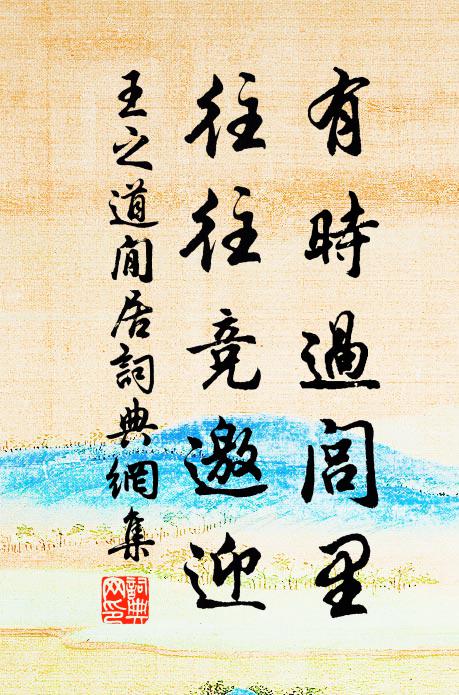 有時過閭里
往往競邀迎
王之道閒居詞典網集
詞典网印